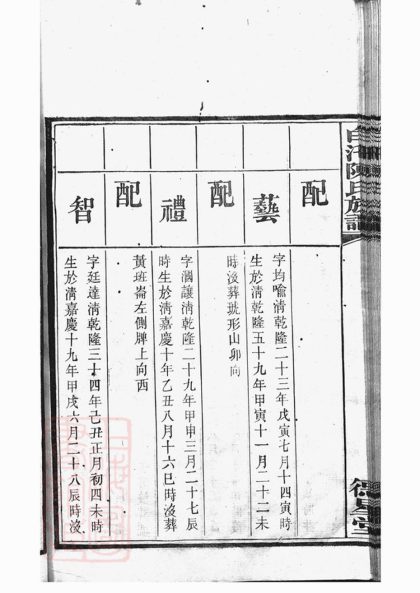 白沙陳氏族譜
德星堂
配
藝
字均喻清乾隆二十三年戊寅七月十四寅時
生於清乾隆五十九年甲寅十一月二十二未
時沒葬琥形山卯向
配
禮
字澗讓清乾隆二十九年甲申三月二十七辰
時生於清嘉慶十年乙丑八月十六巳時沒葬
黃班崙左側牌上向西
配
智
字廷達清乾隆三十四年己丑正月初四未時
生於清嘉慶十九年甲戌六月二十八辰時沒